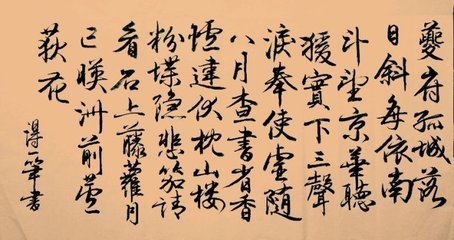 夔府孤城落
日斜每依南
斗望京華聽
猿實下三聲
淚奉使虛隨
八月查畫省香
爐違伏枕山樓
粉堞隱悲笳請
看石上藤蘿月
已映洲前蘆
荻花
一筆書